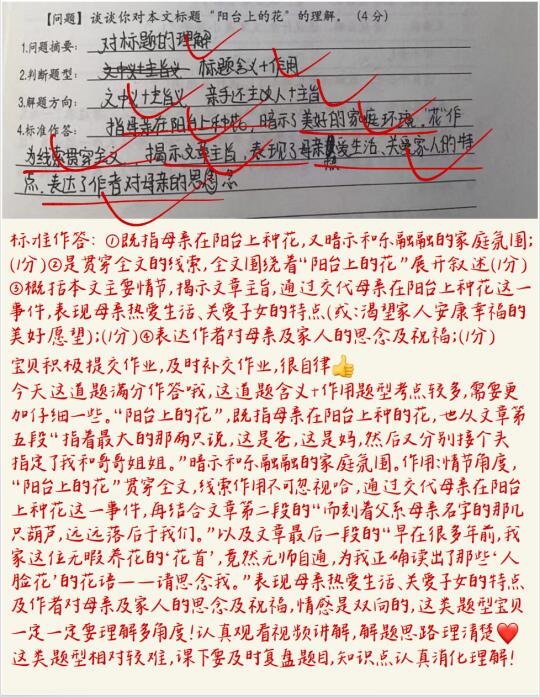 【问题】谈谈你对本文标题“阳台上的花”的理解。(4分)
1.问题摘要: 对标题的理解
2.判断题型: 标题含义+作用
3.解题方向: 文中义+主旨义 亲手还主的人+主旨
4.标准作答: 指母亲在阳台上种花,暗示了美好的家庭环境,“花”作
为线索贯穿全文,揭示文章主旨,表现了母亲热爱生活、关爱家人的特
点,表达了作者对母亲的思念
标准作答:①既指母亲在阳台上种花,又暗示和乐融融的家庭氛围;
(1分)②是贯穿全文的线索,全文围绕着“阳台上的花”展开叙述(1分)
③概括本文主要情节,揭示文章主旨,通过交代母亲在阳台上种花这一
事件,表现母亲热爱生活、关爱子女的特点(或:渴望家人安康幸福的
美好愿望);(1分)④表达作者对母亲及家人的思念及祝福;(1分)
宝贝积极提交作业,及时补交作业,很自律👍
今天这道题满分作答哦,这道题含义+作用题型考点较多,需要更
加仔细一些。“阳台上的花”,既指母亲在阳台上种的花,也从文章第
五段“指着最大的那两只说,这是爸,这是妈,然后又分别按个头
指定了我和哥哥姐姐。”暗示和乐融融的家庭氛围。作用:情节角度,
“阳台上的花”贯穿全文,线索作用不可忽视哈,通过交代母亲在阳台
上种花这一事件,再结合文章第二段的“而刻着父系母亲名字的那几
只葫芦,远远落后于我们。”以及文章最后一段的“早在很多年前,我
家这位无暇养花的‘花首’,竟然无师自通,为我正确读出了那些‘人
脸花’的花语——请思念我。”表现母亲热爱生活、关爱子女的特点
及作者对母亲及家人的思念及祝福,情感是双向的,这类题型宝贝
一定一定要理解多角度!认真观看视频讲解,解题思路理清楚❤
这类题型相对较难,课下要及时复盘题目,知识点认真消化理解!